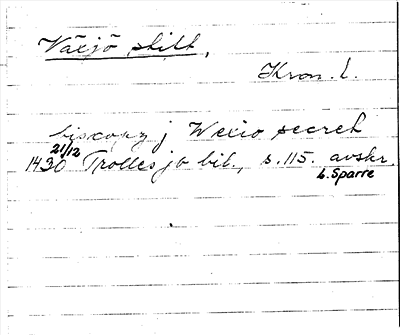 Växjö stift,
Kron. l.
biscopz j Wexio secret
21/12
1430 Trollesjö bib., s. 115. avskr.
L. Sparre